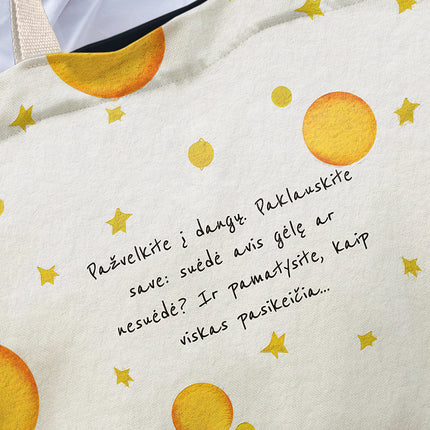 Pažvelkite į dangų. Paklauskite
save: suėdė avis gėlę ar
nesuėdė? Ir pamatysite, kaip
viskas pasikeičia...